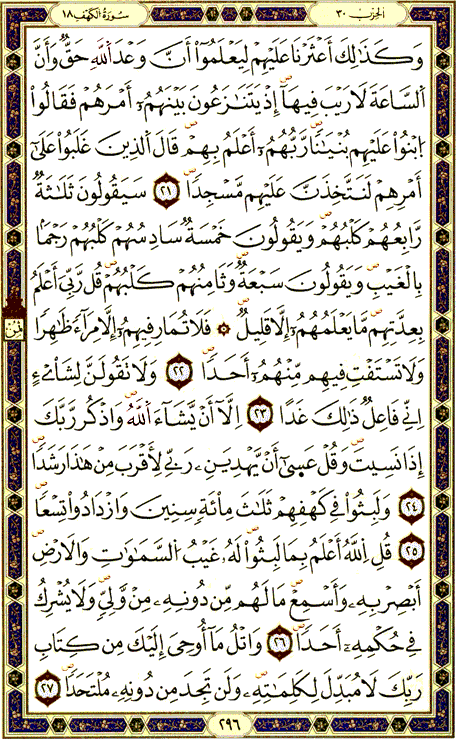 الحزب ٣٠
سورة الكهف ١٨
وَكَذَٰلِكَ أَعْثَرْنَا عَلَيْهِمْ لِيَعْلَمُوٓا۟ أَنَّ وَعْدَ ٱللَّهِ حَقٌّ وَأَنَّ
ٱلسَّاعَةَ لَا رَيْبَ فِيهَآ إِذْ يَتَنَٰزَعُونَ بَيْنَهُمُۥٓ أَمْرَهُمْ فَقَالُوا۟
ٱبْنُوا۟ عَلَيْهِم بُنْيَٰنًا رَّبُّهُمُۥٓ أَعْلَمُ بِهِمْ قَالَ ٱلَّذِينَ غَلَبُوا۟ عَلَىٰٓ
أَمْرِهِمْ لَنَتَّخِذَنَّ عَلَيْهِم مَّسْجِدًا ٢١ سَيَقُولُونَ ثَلَٰثَةٌ
رَّابِعُهُمْ كَلْبُهُمْ وَيَقُولُونَ خَمْسَةٌ سَادِسُهُمْ كَلْبُهُمْ رَجْمًۢا
بِٱلْغَيْبِ وَيَقُولُونَ سَبْعَةٌ وَثَامِنُهُمْ كَلْبُهُمْ قُل رَّبِّىٓ أَعْلَمُ
بِعِدَّتِهِم مَّا يَعْلَمُهُمُۥٓ إِلَّا قَلِيلٌ ۞ فَلَا تُمَارِ فِيهِمُۥٓ إِلَّا مِرَآءً ظَٰهِرًا
وَلَا تَسْتَفْتِ فِيهِم مِّنْهُمُۥٓ أَحَدًا ٢٢ وَلَا تَقُولَنَّ لِشَا۟ىْءٍ
إِنِّى فَاعِلٌ ذَٰلِكَ غَدًا ٢٣ إِلَّآ أَنْ يَّشَآءَ ٱللَّهُ وَٱذْكُر رَّبَّكَ
إِذَا نَسِيتَ وَقُلْ عَسَىٰٓ أَنْ يَّهْدِيَنِۦ رَبِّى لِأَقْرَبَ مِنْ هَٰذَا رَشَدًا
٢٤ وَلَبِثُوا۟ فِى كَهْفِهِمْ ثَلَٰثَ مِا۟ئَةٍ سِنِينَ وَٱزْدَادُوا۟ تِسْعًا
٢٥ قُلِ ٱللَّهُ أَعْلَمُ بِمَا لَبِثُوا۟ لَهُۥ غَيْبُ ٱلسَّمَٰوَٰتِ وَٱلْأَرْضِ
أَبْصِرْ بِهِۦ وَأَسْمِعْ مَا لَهُم مِّن دُونِهِۦ مِنْ وَّلِىٍّ وَلَا يُشْرِكُ
فِى حُكْمِهِۦٓ أَحَدًا ٢٦ وَٱتْلُ مَآ أُوحِىَ إِلَيْكَ مِن كِتَابِ
رَبِّكَ لَا مُبَدِّلَ لِكَلِمَٰتِهِۦ وَلَن تَجِدَ مِن دُونِهِۦ مُلْتَحَدًا ٢٧
ثمن
٢٩٦